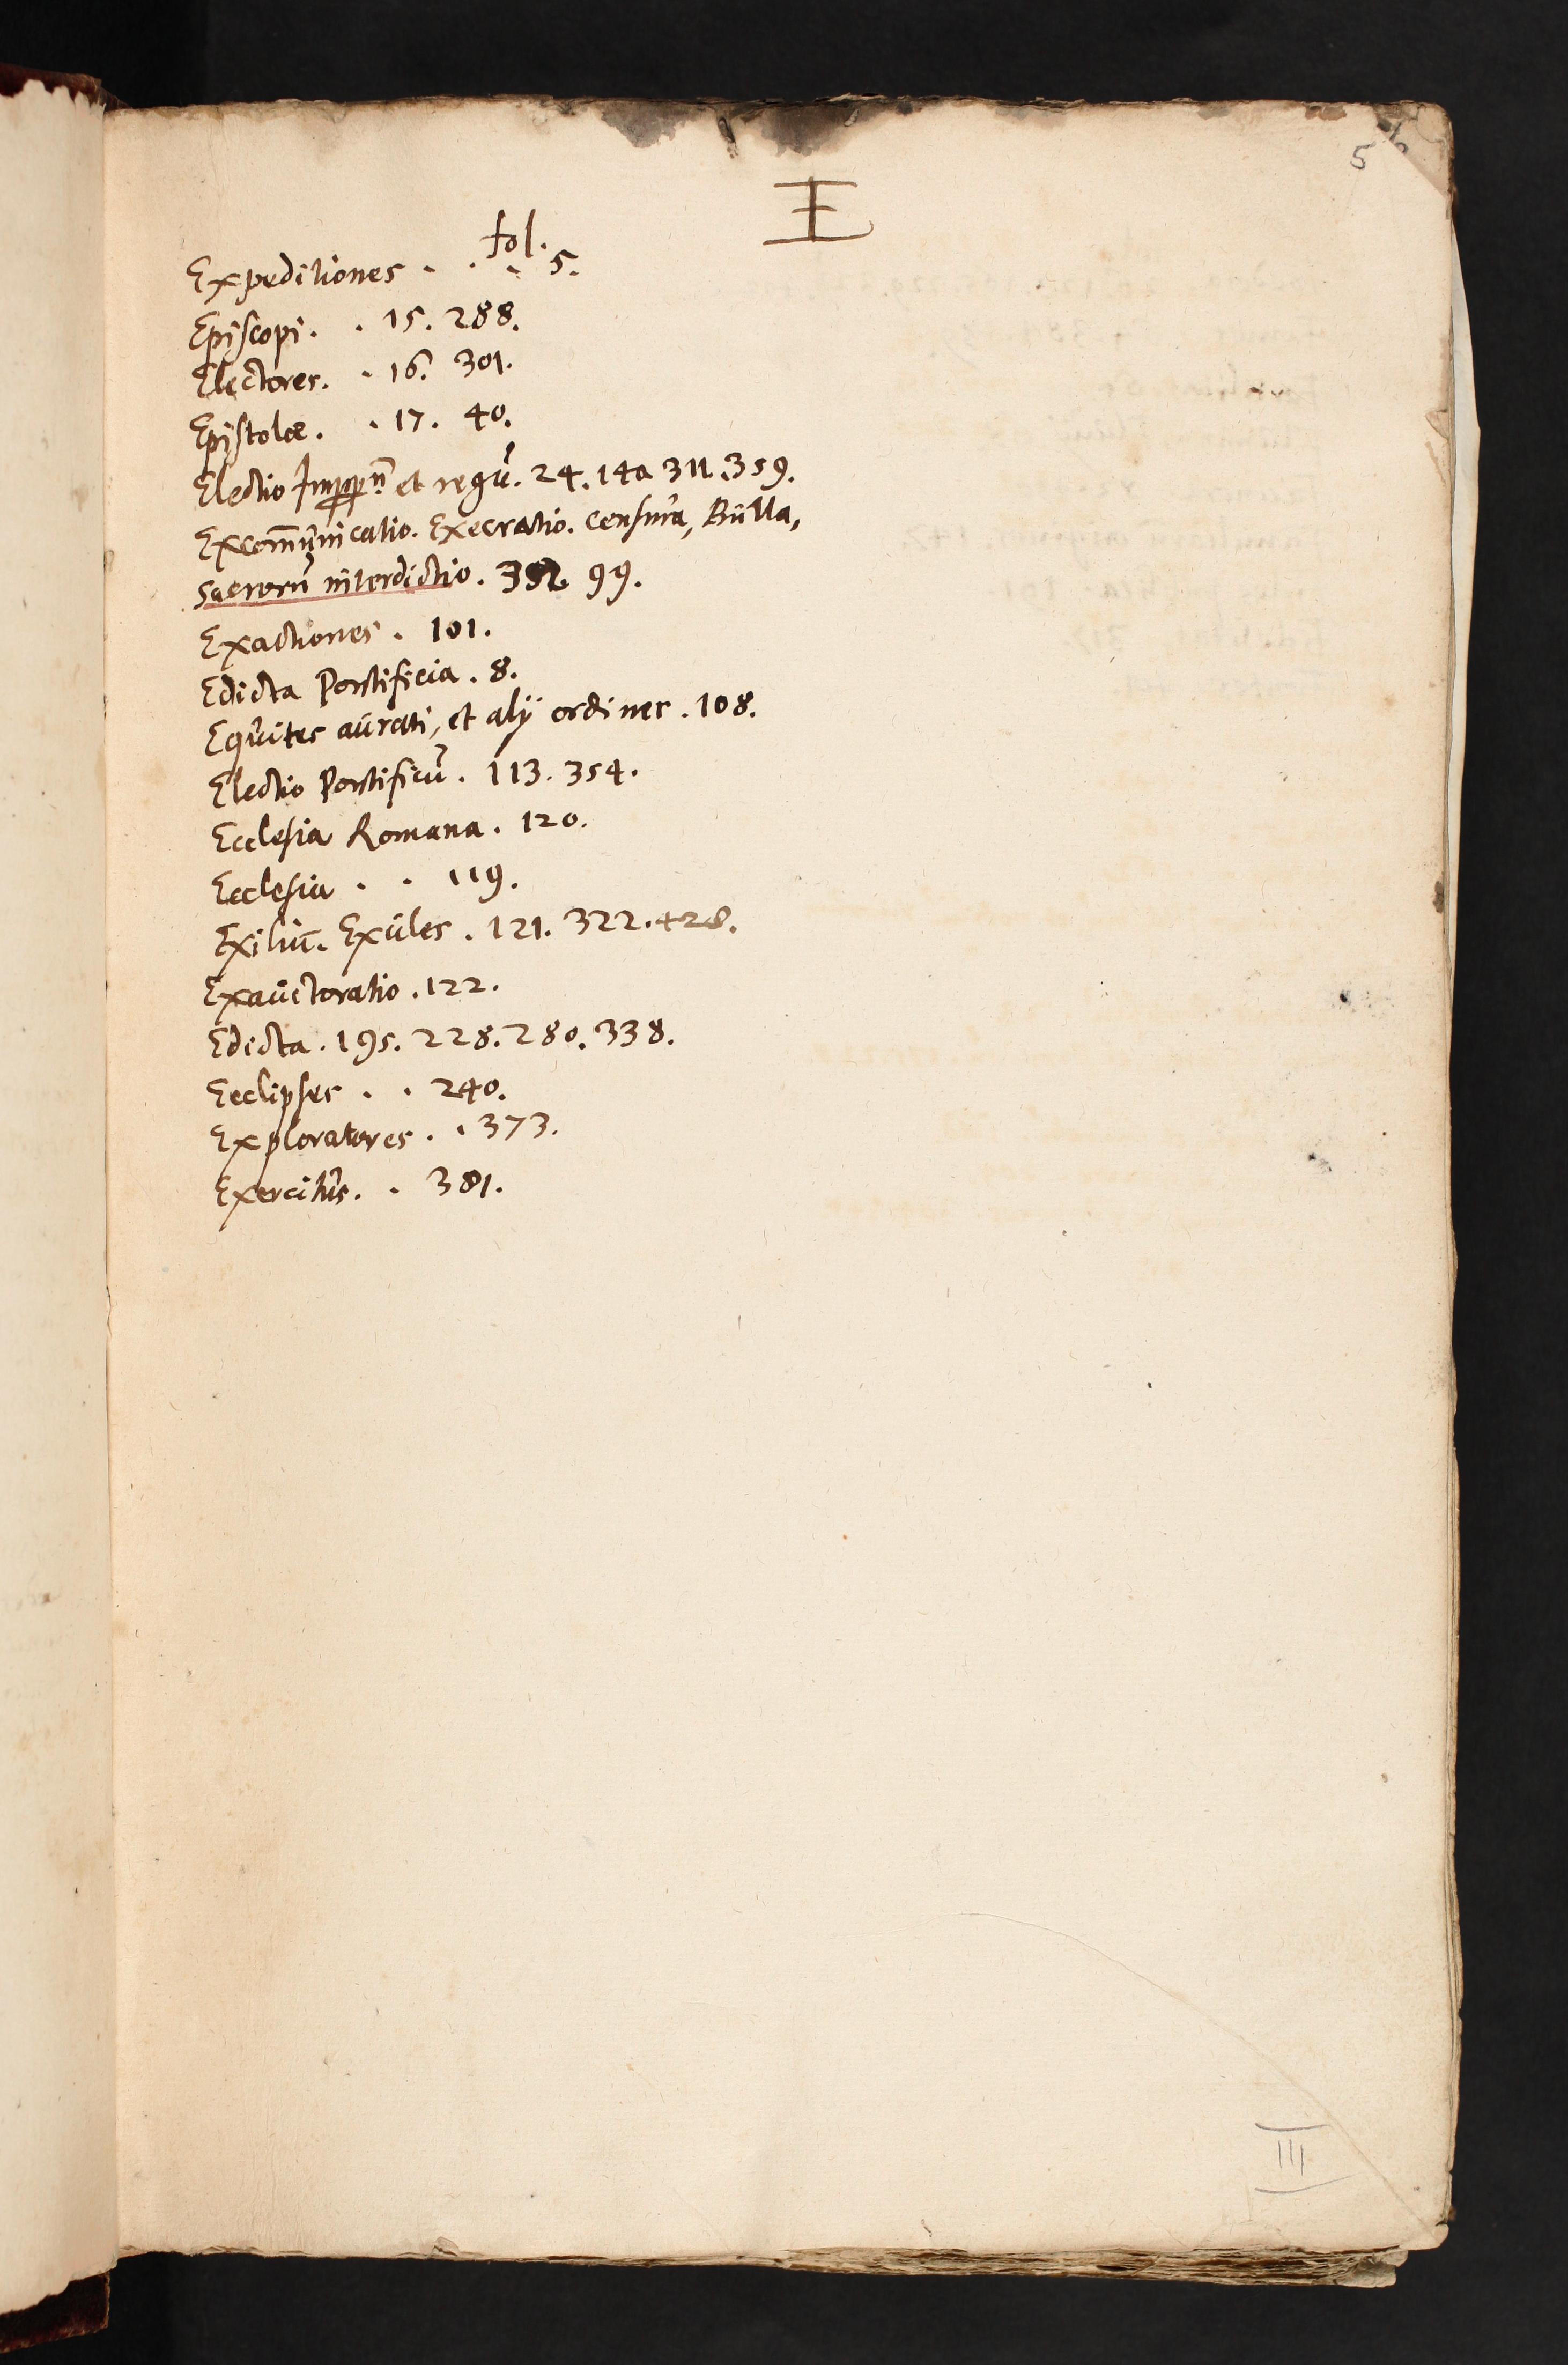 5
E
fol.
Expeditiones . . . 5.
Episcopi . . 15. 288.
Electores. . 16. 301.
Epistolæ . . 17. 40.
Electio et regū. 24. 140 311. 359.
Excom̄unicatio. Execratio. Censura, Bulla,
sacrorū interdictio. 99.
Exactiones . 101.
Edicta Pontificia . 8.
Equites aurati, et alÿ ordines . 108.
Electio Pontificū . 113. 354.
Ecclesia Romana . 120.
Ecclesia . . 119.
Exiliū. Exules . 121. 322. 428.
Exauctoratio . 122.
Edicta . 195. 228. 280. 338.
Ecclipses . . 240.
Exploratores . . 373.
Exercitus. . 381.
III